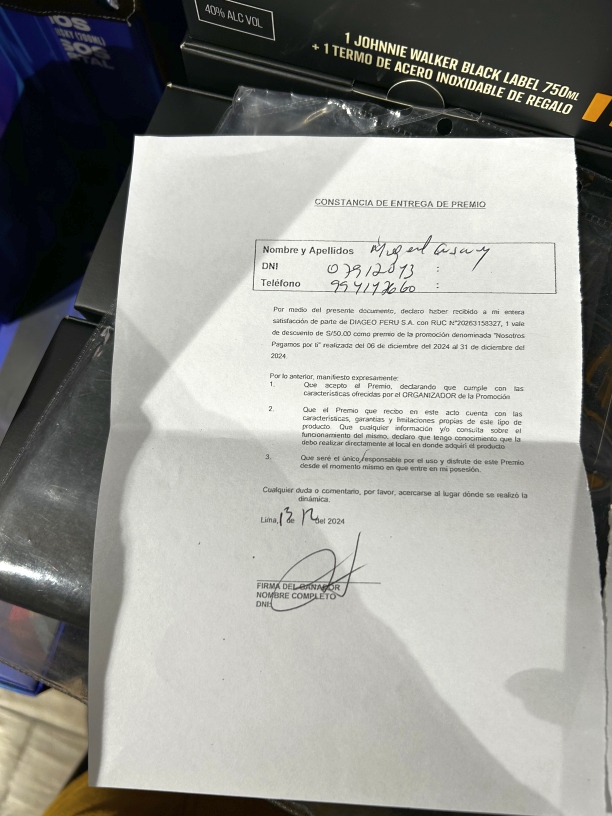 40% ALC VOL
1 JOHNNIE WALKER BLACK LABEL 750ML
+ 1 TERMO DE ACERO INOXIDABLE DE REGALO
CONSTANCIA DE ENTREGA DE PREMIO
Nombre y Apellidos Miguel
DNI :
Teléfono :
Por medio del presente documento, declaro haber recibido a mi entera
satisfacción de parte de DIAGEO PERU S.A. con RUC N°20263158327, 1 vale
de descuento de S/50.00 como premio de la promoción denominada "Nosotros
Pagamos por ti" realizada del 06 de diciembre del 2024 al 31 de diciembre del
2024.
Por lo anterior, manifiesto expresamente:
1. Que acepto el Premio, declarando que cumple con las
características ofrecidas por el ORGANIZADOR de la Promoción
2. Que el Premio que recibo en este acto cuenta con las
características, garantías y limitaciones propias de este tipo de
producto. Que cualquier información y/o consulta sobre el
funcionamiento del mismo, declaro que tengo conocimiento que la
debo realizar directamente al local en donde adquirí el producto
3. Que seré el único responsable por el uso y disfrute de este Premio
desde el momento mismo en que entre en mi posesión.
Cualquier duda o comentario, por favor, acercarse al lugar dónde se realizó la
dinámica.
Lima, 13 de 12 del 2024
FIRMA DEL GANADOR
NOMBRE COMPLETO
DNI: